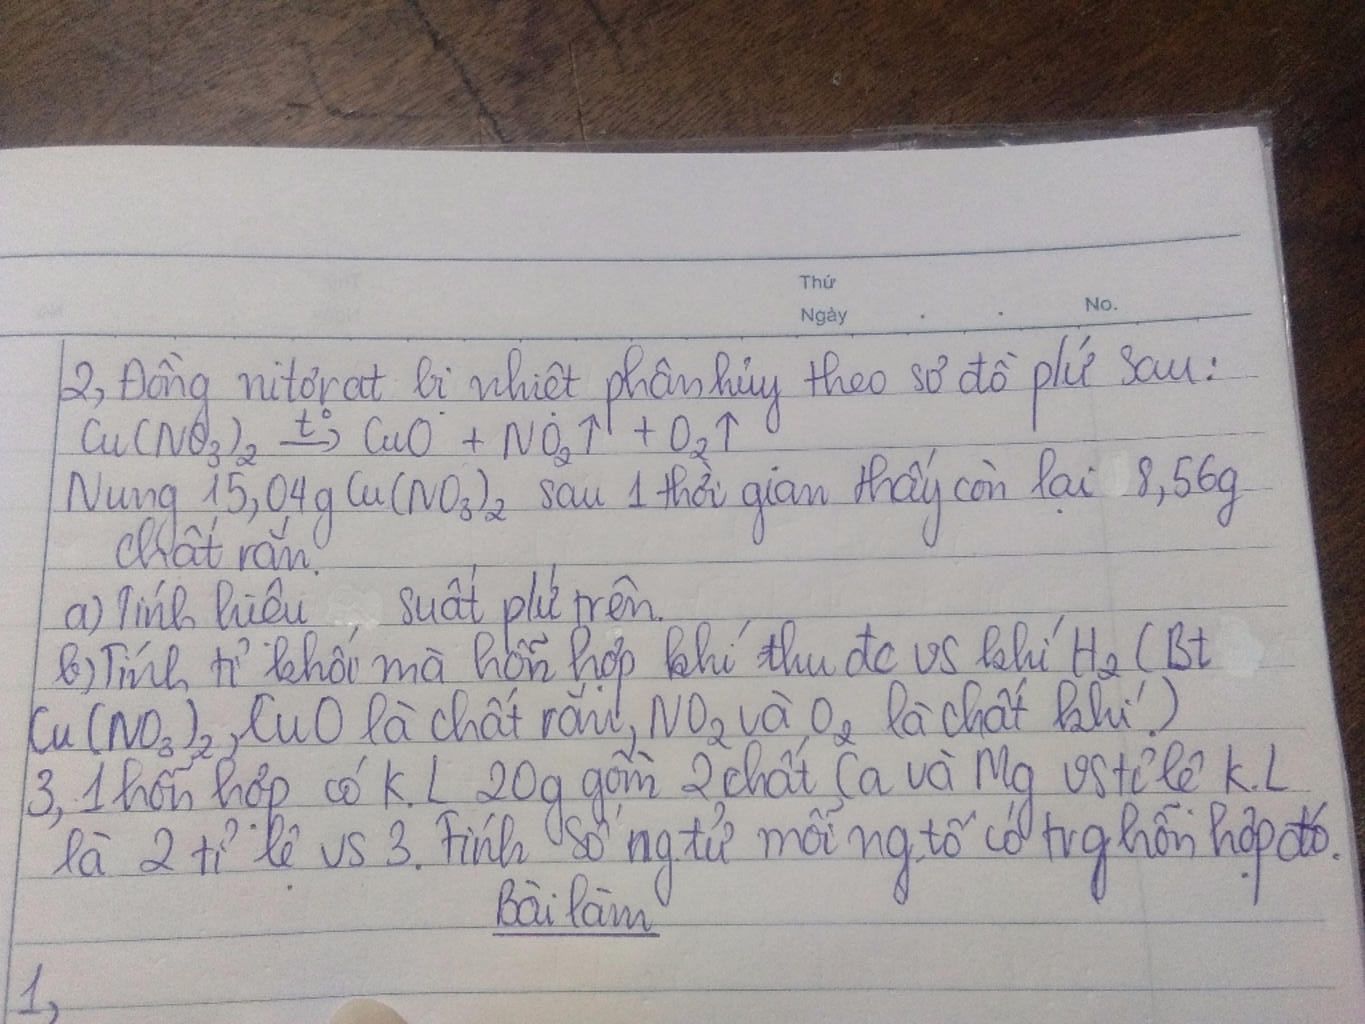 Thứ
Ngày . . No.
2, Đồng nitơrat bị nhiệt phân hủy theo sơ đồ pứ sau:
Cu(NO₃)₂ t°→ CuO + NO₂↑ + O₂↑
Nung 15,04g Cu(NO₃)₂ sau 1 thời gian thấy còn lại 8,56g
chất rắn.
a) Tính hiệu suất pứ trên.
b) Tính tỉ khối mà hỗn hợp khí thu đc vs khí H₂ (Bt
Cu(NO₃)₂, CuO là chất rắn, NO₂ và O₂ là chất khí)
3, 1 hỗn hợp có K.L 20g gồm 2 chất Ca và Mg vs tỉ lệ K.L
là 2 tỉ lệ vs 3. Tính số ng.tử mỗi ng.tố có trg hỗn hợp đó.
Bài làm
1,